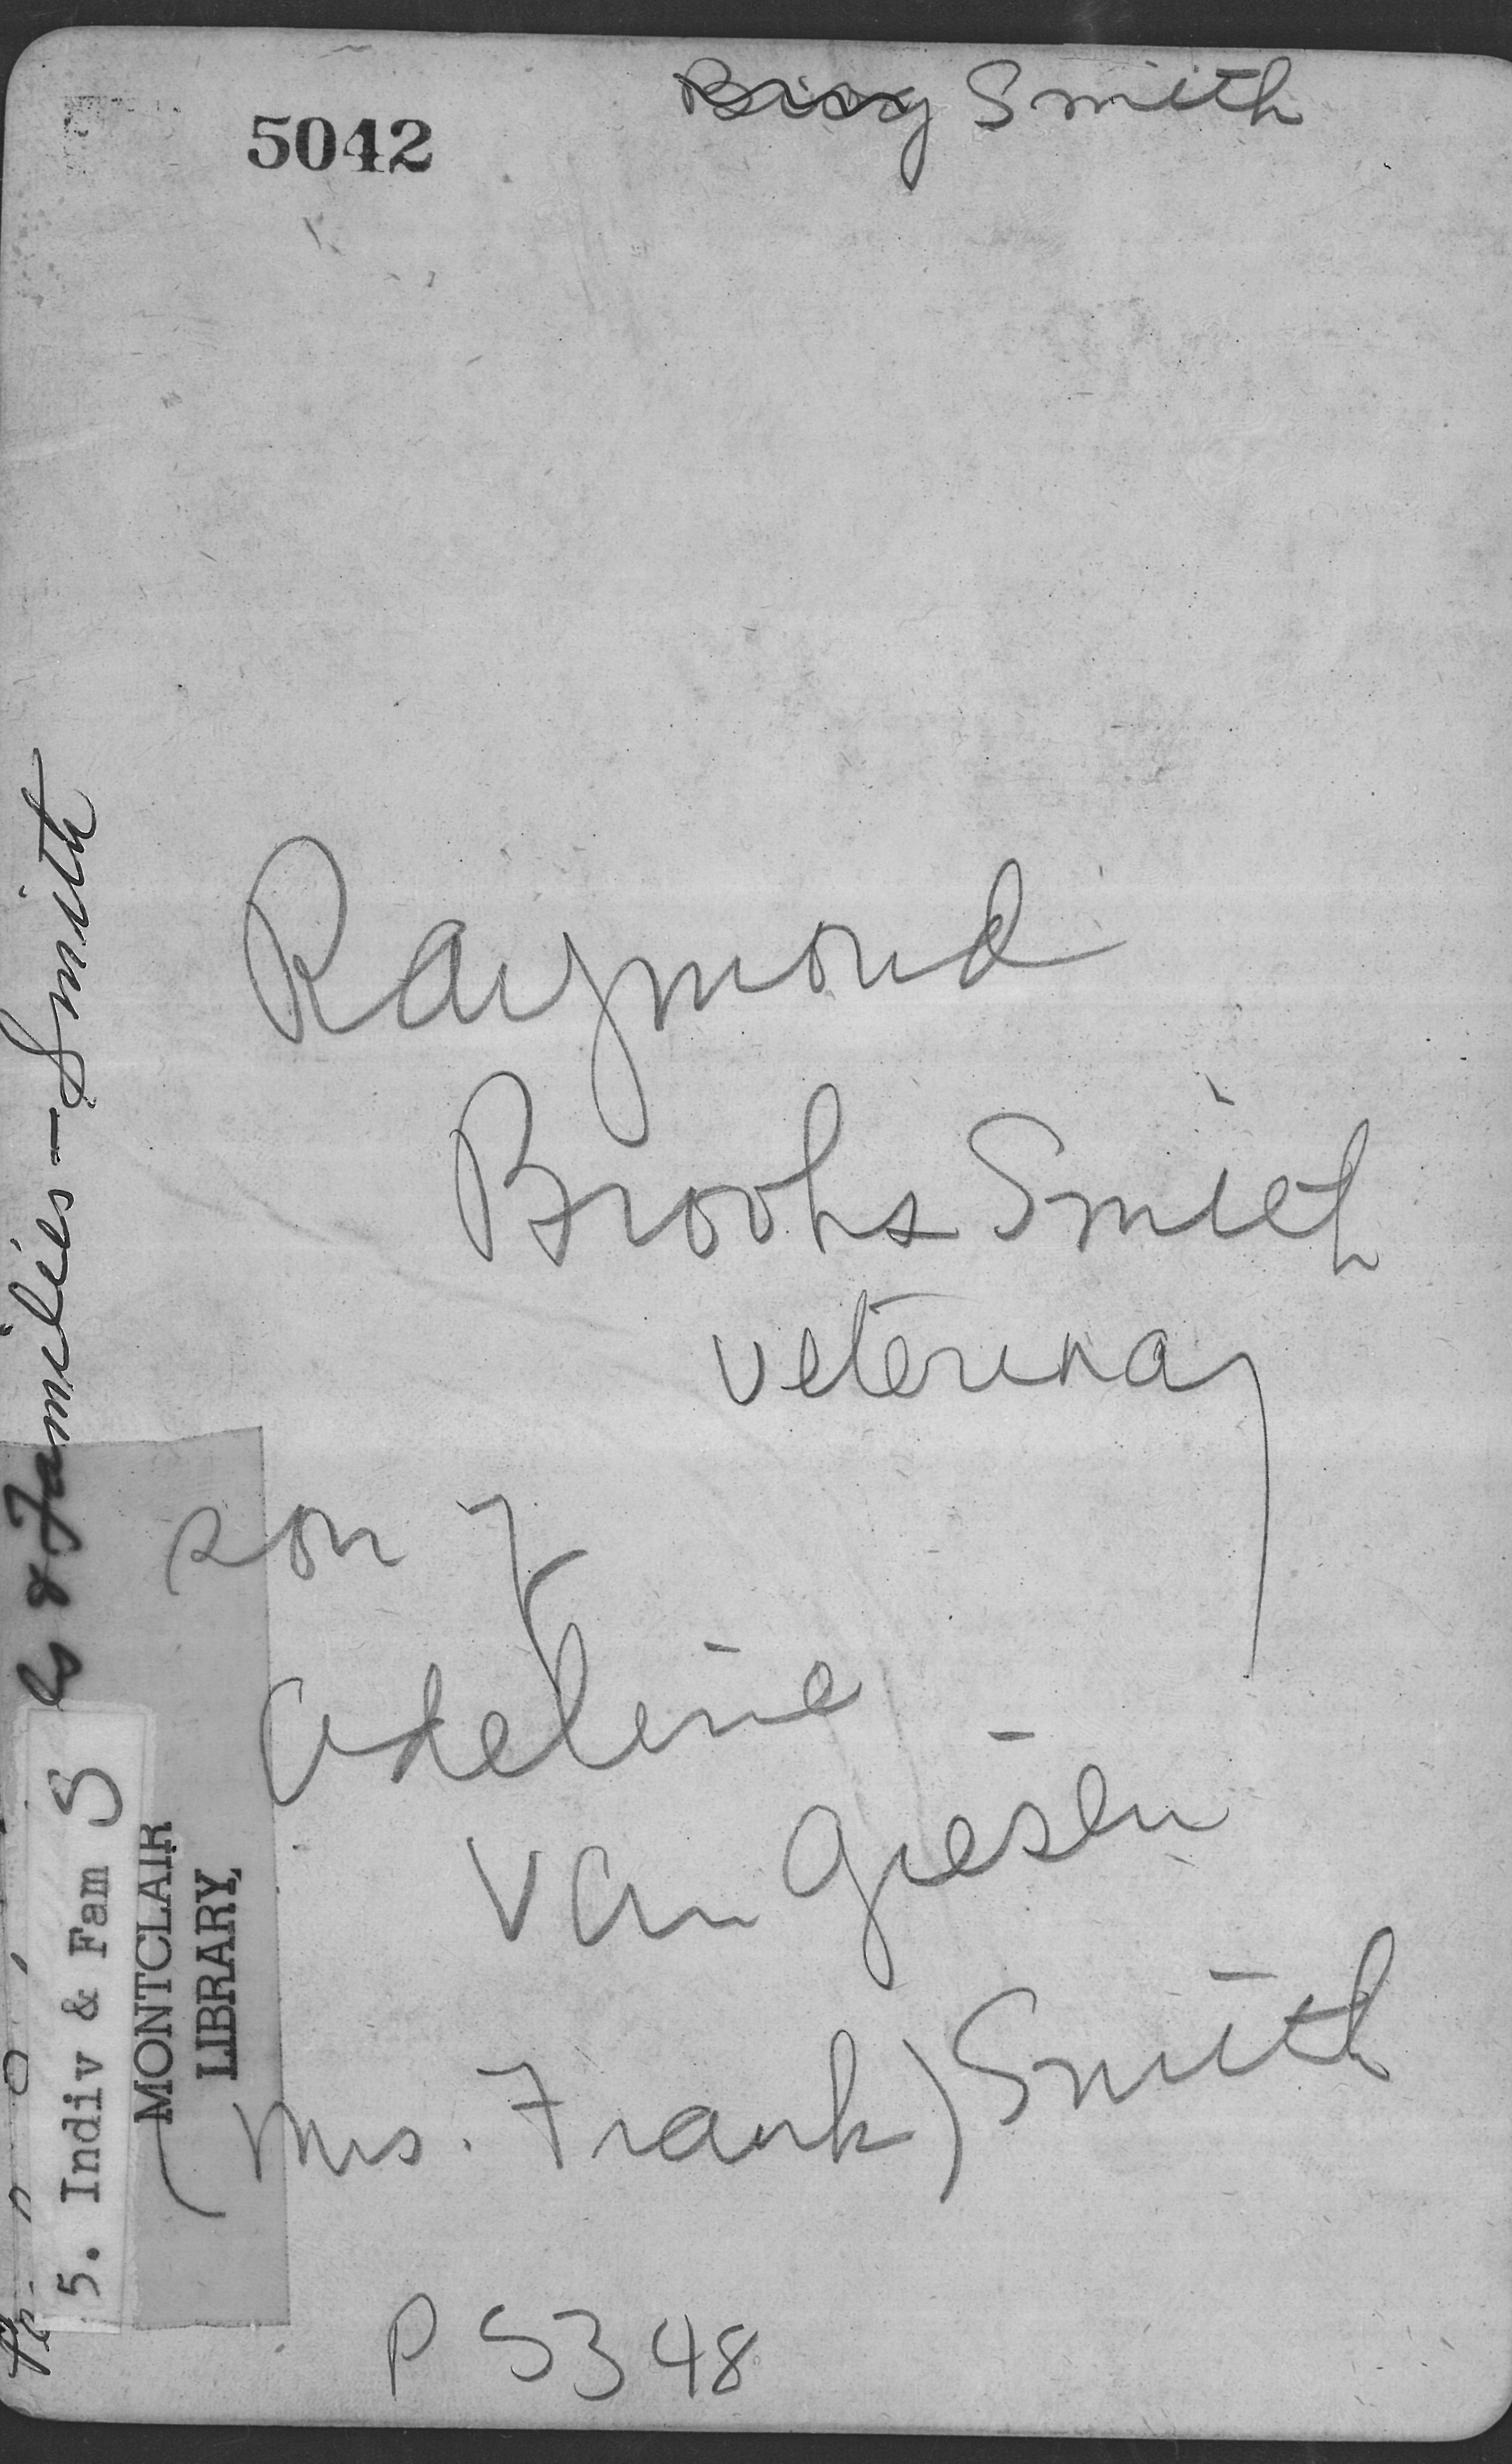 Smith
5042
Raymond
Brooks Smith
veterinay
son of
Adeline
Van Giesen
(Mrs. Frank) Smith
P 5348
& Families - Smith
5. Indiv & Fam S
MONTCLAIR
LIBRARY